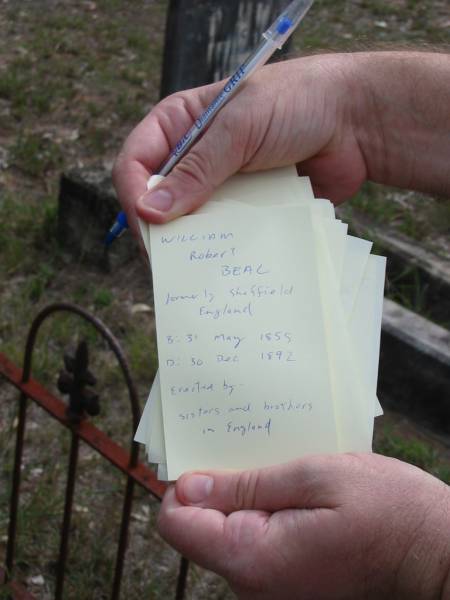 WILLIAM
Robert
BEAL
formerly Sheffield
England
B: 31 May 1855
D: 30 Dec 1892
Erected by -
sisters and brothers
in England